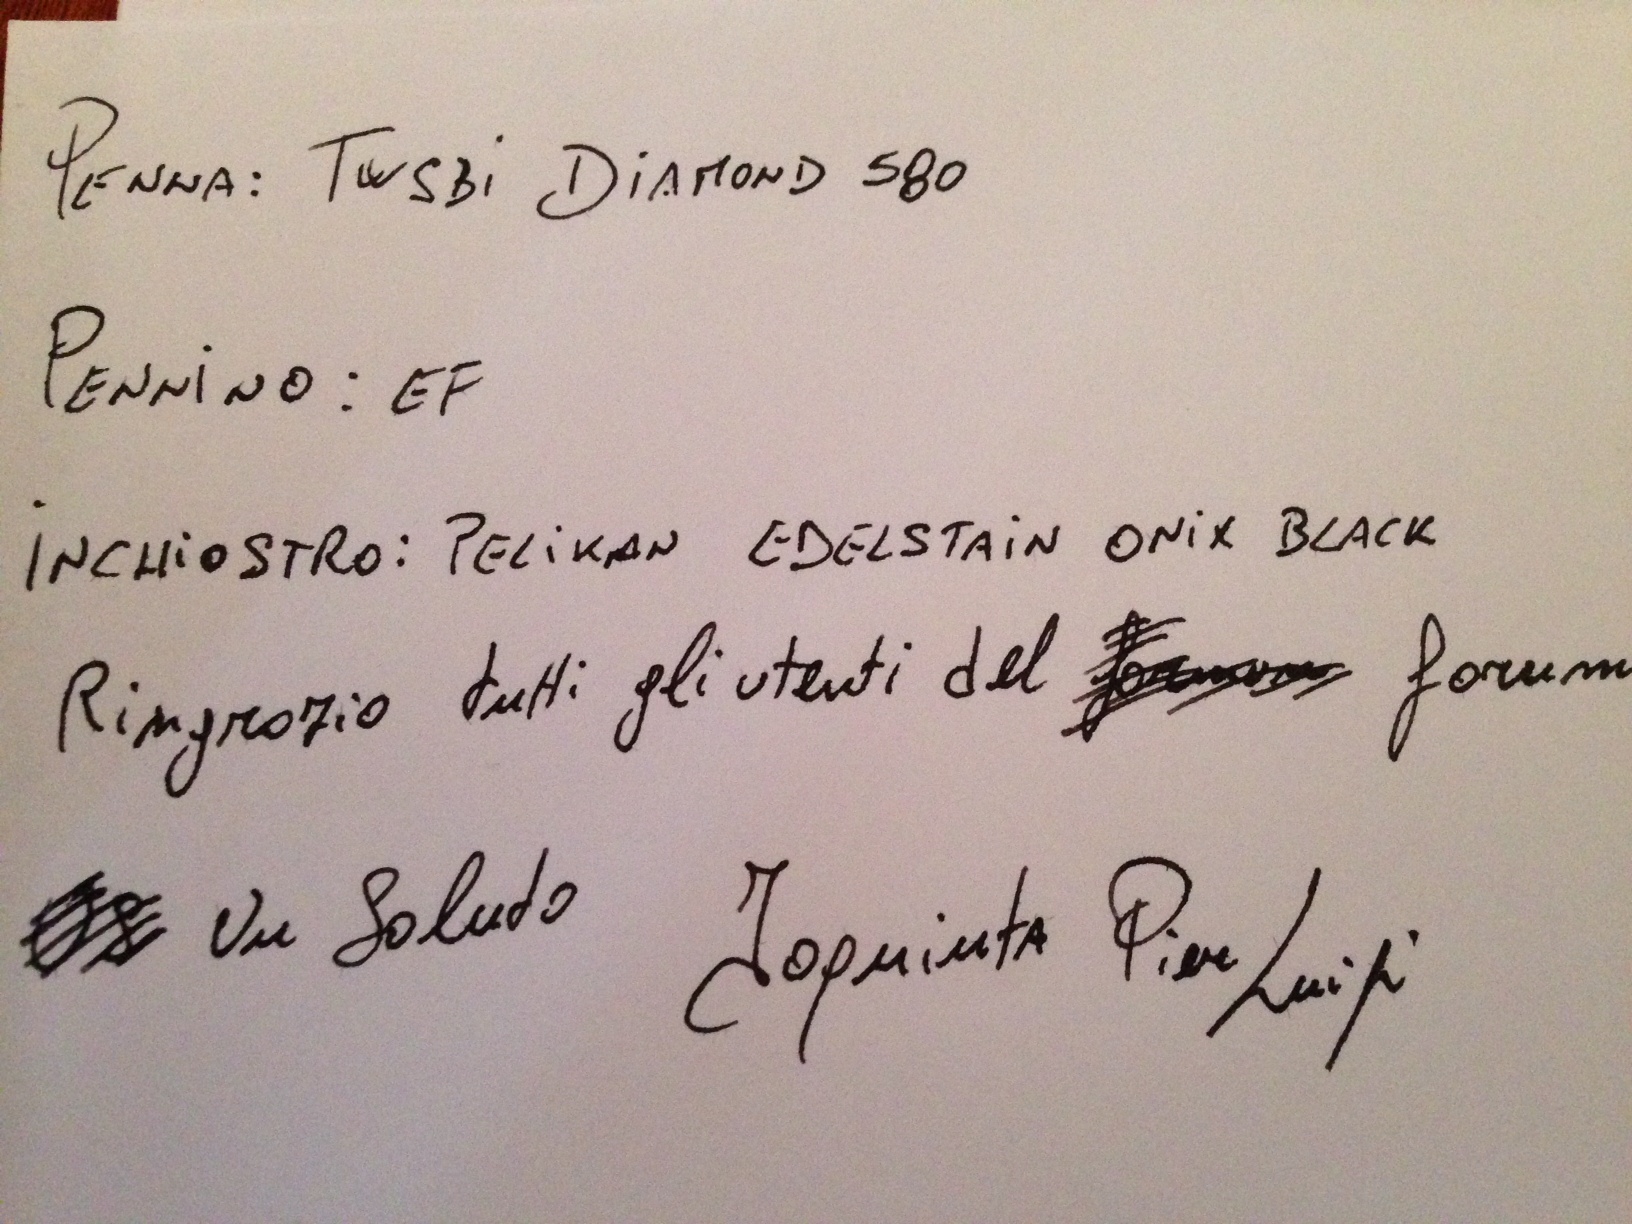 PENNA: TWSBi DiAMOND 580
PENNiNO: EF
iNCHiOSTRO: PELiKAN EDELSTAiN ONiX BLACK
Ringrazio tutti gli utenti del forum
Un Saluto Iaquinta Pier Luigi